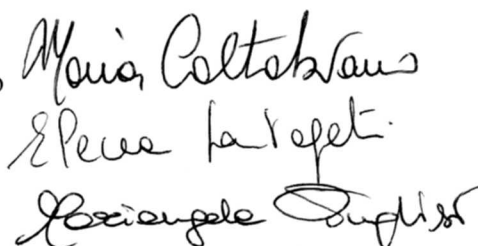 Maria Caltabiano
Elena
Mariangela Puglisi